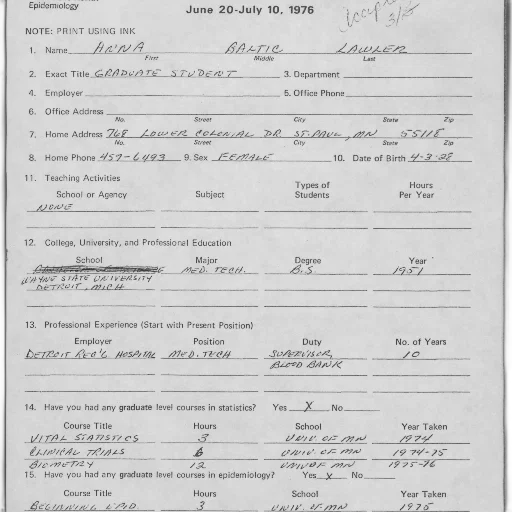 Epidemiology
June 20-July 10, 1976
3/15
NOTE: PRINT USING INK
1. Name ANNA BALTIC LAWLER
First Middle Last
2. Exact Title GRADUATE STUDENT 3. Department
4. Employer 5. Office Phone
6. Office Address
No. Street City State Zip
7. Home Address 768 LOWER COLONIAL DR ST. PAUL, MN 55118
No. Street City State Zip
8. Home Phone 457-6493 9. Sex FEMALE 10. Date of Birth 4-3-28
11. Teaching Activities
School or Agency Subject Types of Students Hours Per Year
NONE
12. College, University, and Professional Education
School Major Degree Year
MED. TECH. B.S. 1951
WAYNE STATE UNIVERSITY
DETROIT, MICH
13. Professional Experience (Start with Present Position)
Employer Position Duty No. of Years
DETROIT REC'G HOSPITAL MED. TECH SUPERVISOR, 10
BLOOD BANK
14. Have you had any graduate level courses in statistics? Yes X No
Course Title Hours School Year Taken
VITAL STATISTICS 3 UNIV. OF MN 1974
CLINICAL TRIALS 6 UNIV. OF MN 1974-75
BIOMETRY 12 UNIV OF MN 1975-76
15. Have you had any graduate level courses in epidemiology? Yes X No
Course Title Hours School Year Taken
BEGINNING EPID. 3 UNIV. OF MN 1975